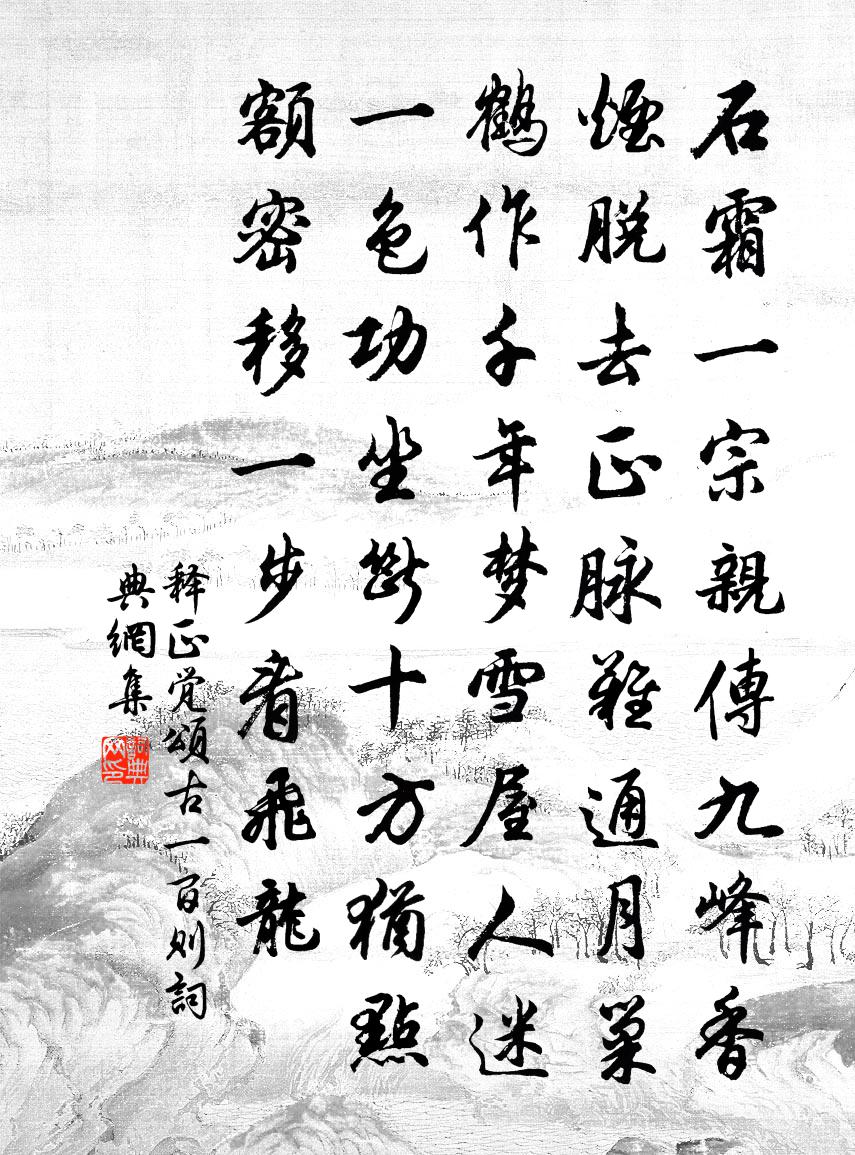 石霜一宗親傳九峰香
煙脫去正脉難通月巢
鶴作千年梦雪屋人迷
一色功坐斷十方猶點
額密移一步看飛龍
释正觉頌古一百则詞
典網集
詞典网印